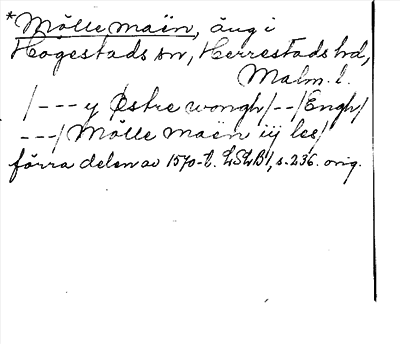 *Mölle maën, äng i
Högestads sn, Herrestads hd,
Malm. l.
/--- y Østre wongh/--/Engh/
---/Mölle maën iij les/
förra delen av 1570-t. LSLB1, s. 236. orig.